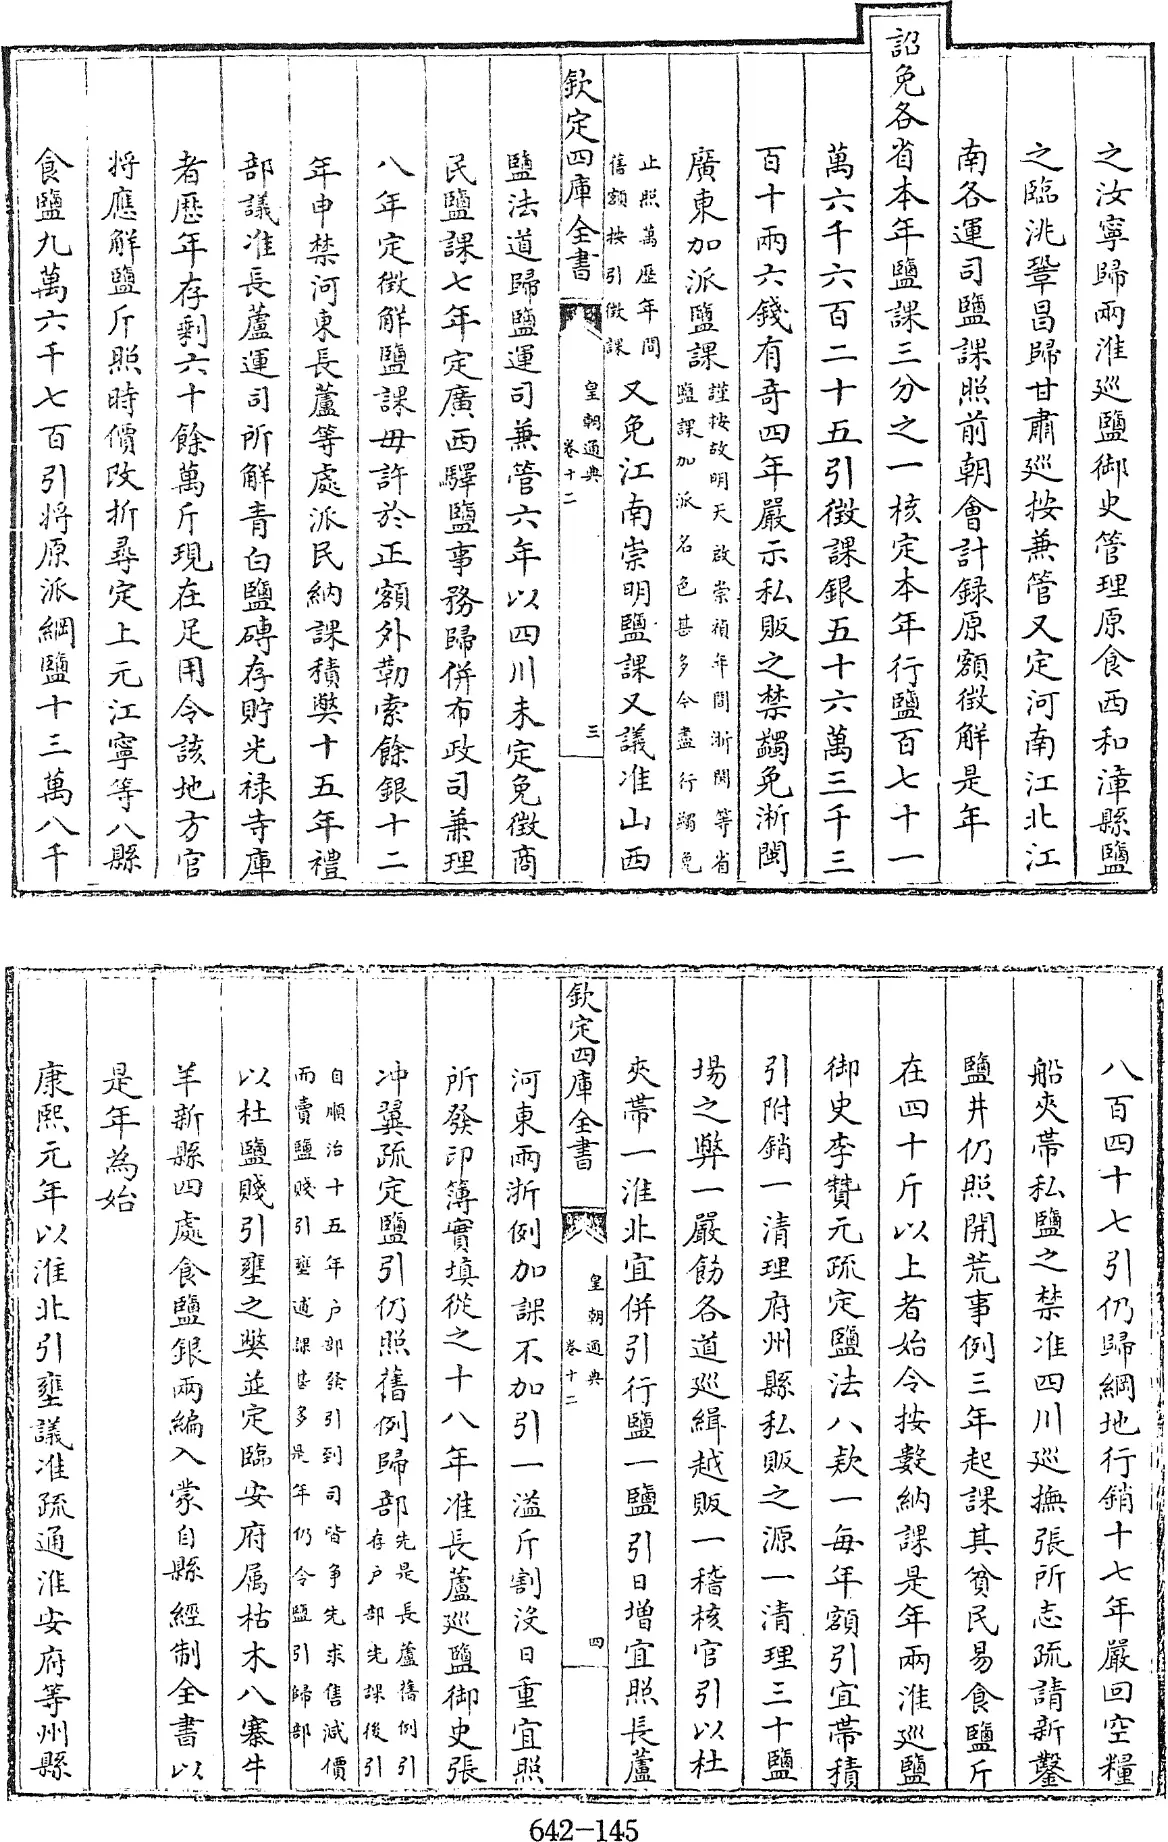 之汝寧歸兩淮巡鹽御史管理原食西和漳縣鹽
之臨洮鞏昌歸甘肅巡按兼管又定河南江北江
南各運司鹽課照前朝會計録原額徵解是年
詔免各省本年鹽課三分之一核定本年行鹽百七十一
萬六千六百二十五引徵課銀五十六萬三千三
百十兩六錢有奇四年嚴示私販之禁蠲免浙閩
廣東加派鹽課謹按故明天啟崇禎年間浙閩等省
鹽課加派名色甚多今盡行蠲免
止照萬歷年間
舊額按引徵課又免江南崇明鹽課又議准山西
欽定四庫全書
皇朝通典
卷十二
三
鹽法道歸鹽運司兼管六年以四川未定免徵商
民鹽課七年定廣西驛鹽事務歸併布政司兼理
八年定徵解鹽課毋許於正額外勒索餘銀十二
年申禁河東長蘆等處派民納課積弊十五年禮
部議准長蘆運司所解青白鹽磚存貯光禄寺庫
者歷年存剩六十餘萬斤現在足用令該地方官
將應解鹽斤照時價改折尋定上元江寧等八縣
食鹽九萬六千七百引將原派綱鹽十三萬八千
八百四十七引仍歸綱地行銷十七年嚴回空糧
船夾帶私鹽之禁准四川巡撫張所志疏請新鑿
鹽井仍照開荒事例三年起課其貧民易食鹽斤
在四十斤以上者始令按數納課是年兩淮巡鹽
御史李贊元疏定鹽法八款一每年額引宜帶積
引附銷一清理府州縣私販之源一清理三十鹽
場之弊一嚴飭各道巡緝越販一稽核官引以杜
夾帶一淮北宜併引行鹽一鹽引日增宜照長蘆
欽定四庫全書
皇朝通典
卷十二
四
河東兩浙例加課不加引一溢斤割没日重宜照
所發印簿實填從之十八年准長蘆巡鹽御史張
冲翼疏定鹽引仍照舊例歸部先是長蘆舊例引
存户部先課後引
自順治十五年户部發引到司皆爭先求售減價
而賣鹽賤引壅逋課甚多是年仍令鹽引歸部
以杜鹽賤引壅之弊並定臨安府属枯木八寨牛
羊新縣四處食鹽銀兩編入蒙自縣經制全書以
是年為始
康熙元年以淮北引壅議准疏通淮安府等州縣
642-145